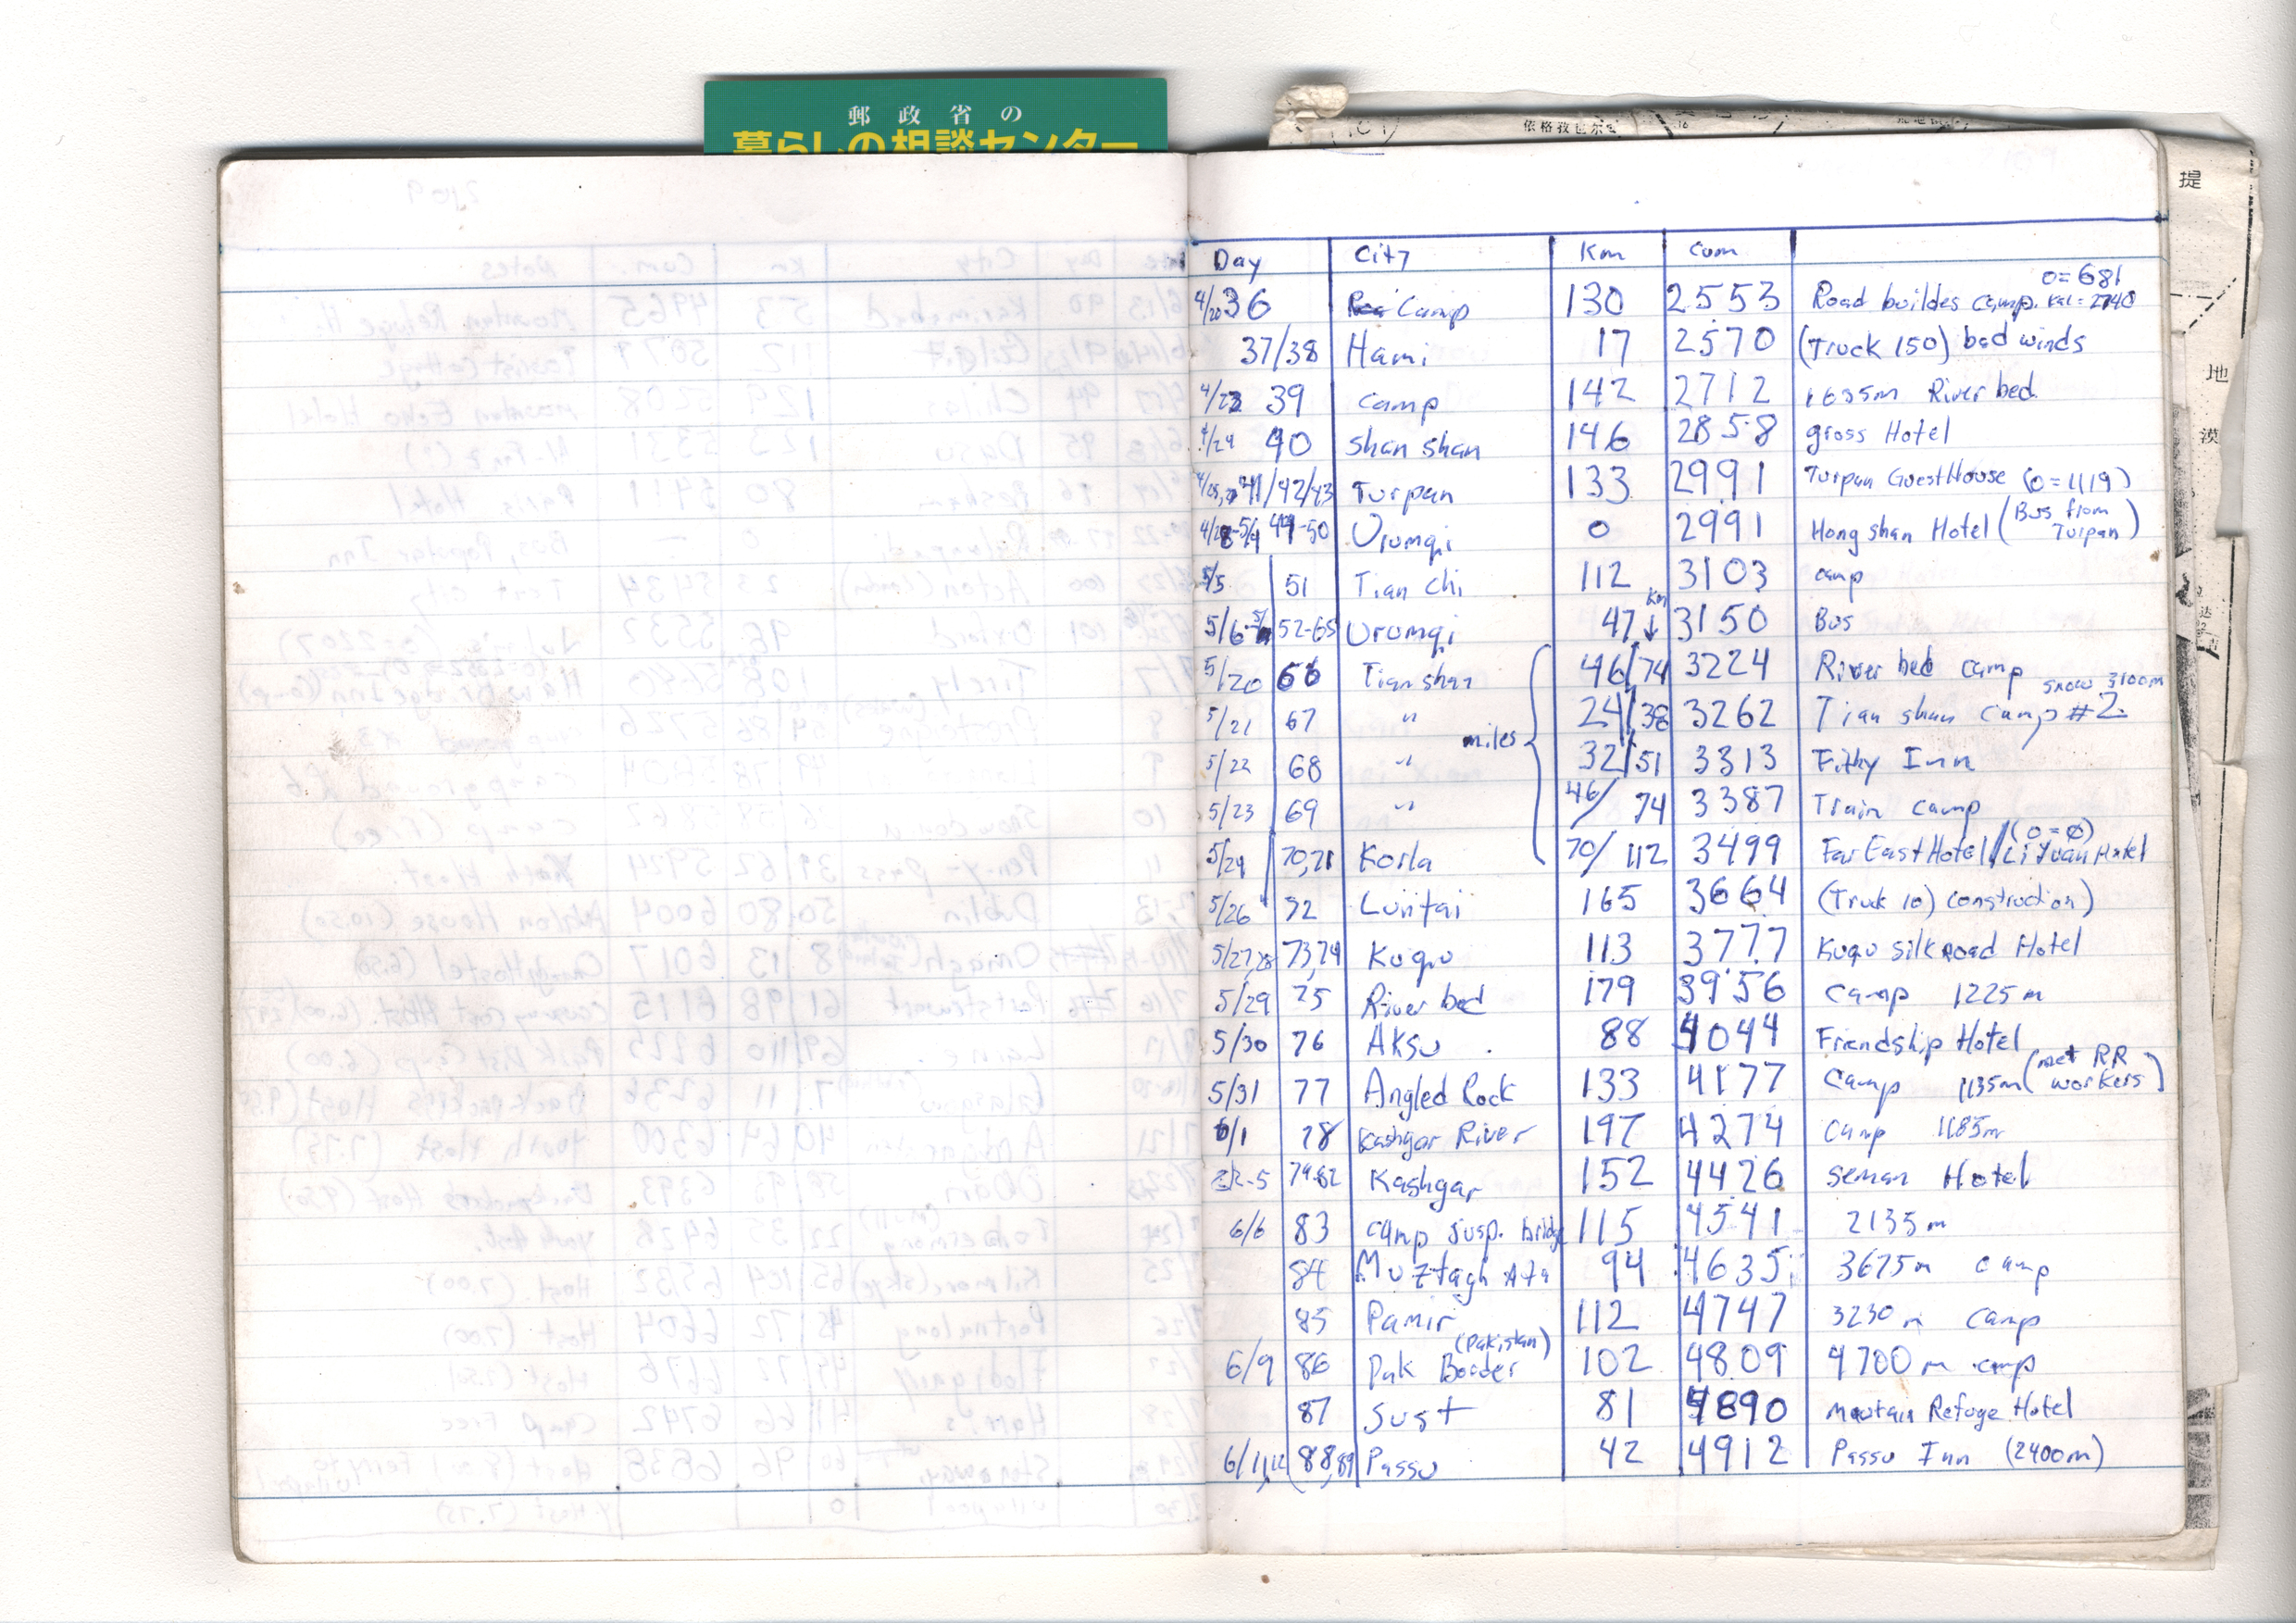 郵政省の
暮らしの相談センター
提
地
漠
Day City Km Cum
4/20 36 Camp 130 2553 Road buildes camp. 0=681
37/38 Hami 17 2570 (Truck 150) bad winds
4/23 39 camp 142 2712 1635m River bed.
4/24 40 shan shan 146 2858 gross Hotel
41/42/43 Turpan 133 2991 Turpan GuestHouse (0=1119)
44-50 Urumqi 0 2991 Hong shan Hotel (Bus from Turpan)
5/5 51 Tian Chi 112 3103 camp
5/6- 52-65 Urumqi 47 km ↓ 3150 Bus
5/20 66 Tianshan 46/74 3224 River bed camp
5/21 67 " 24/38 3262 Tian shan camp #2 snow 3100m
5/22 68 " miles 32/51 3313 Filthy Inn
5/23 69 " 46/74 3387 Train camp
5/24 70,71 Korla 70/112 3499 Far East Hotel/Li Yuan Hotel (0=0)
5/26 72 Luntai 165 3664 (Truck 10) construction)
5/27,28 73,74 Kuqu 113 3777 Kuqu silk road Hotel
5/29 75 River bed 179 3956 Camp 1225m
5/30 76 Aksu 88 4044 Friendship Hotel
5/31 77 Angled Rock 133 4177 Camp 1135m (met RR workers)
6/1 78 Kashgar River 197 4274 camp 1185m
2-5 79-82 Kashgar 152 4426 Seman Hotel
6/6 83 Camp Susp. bridge 115 4541 2135m
84 Muztagh Ata 94 4635 3675m camp
85 Pamir 112 4747 3230m camp
6/9 86 Pak Border (Pakistan) 102 4809 4700m camp
87 Sust 81 4890 Moutain Refuge Hotel
6/11,12 88,89 Passu 42 4912 Passu Inn (2400m)